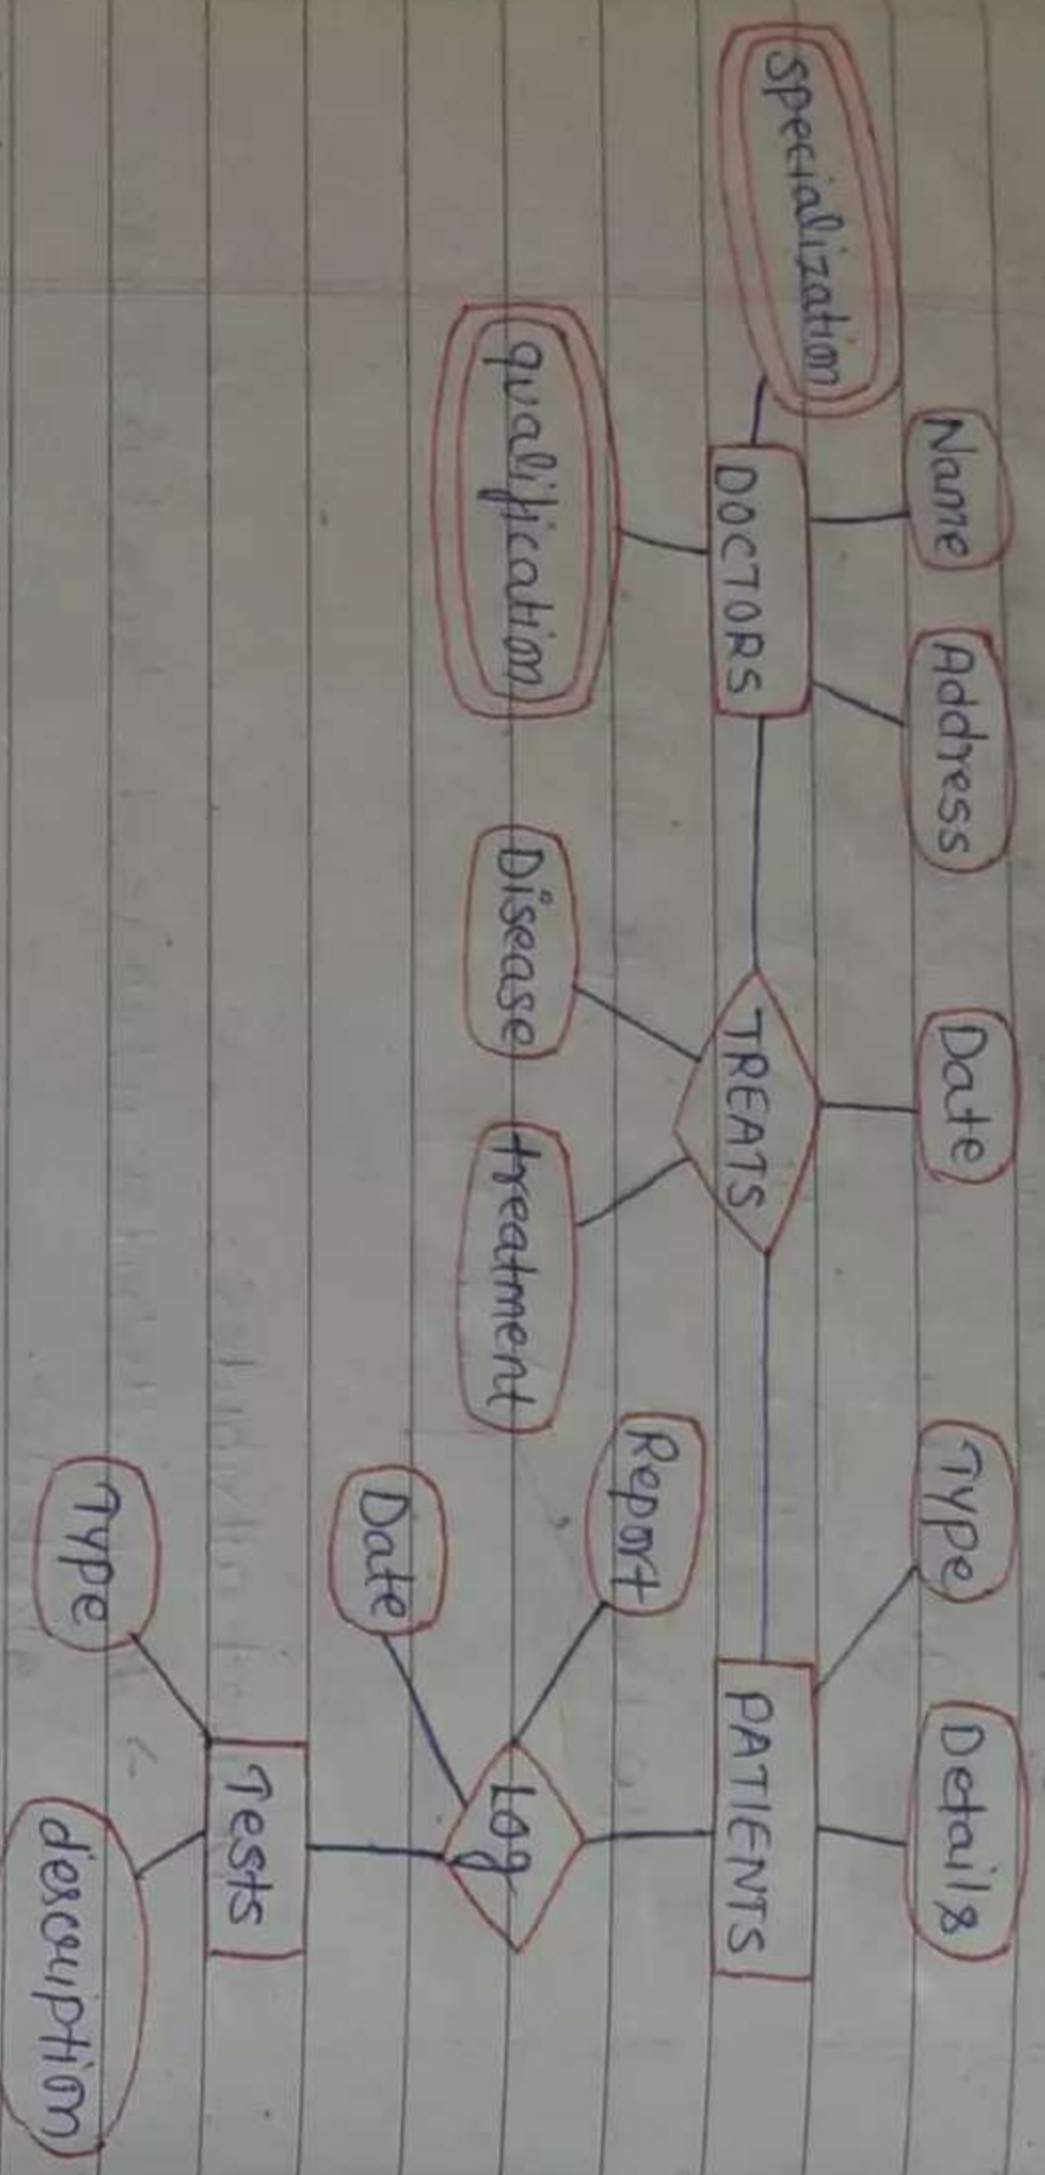 Name
Address
Date
Type
Details
specialization
DOCTORS
TREATS
PATIENTS
qualification
Disease
treatment
Report
Date
Log
Tests
Type
description